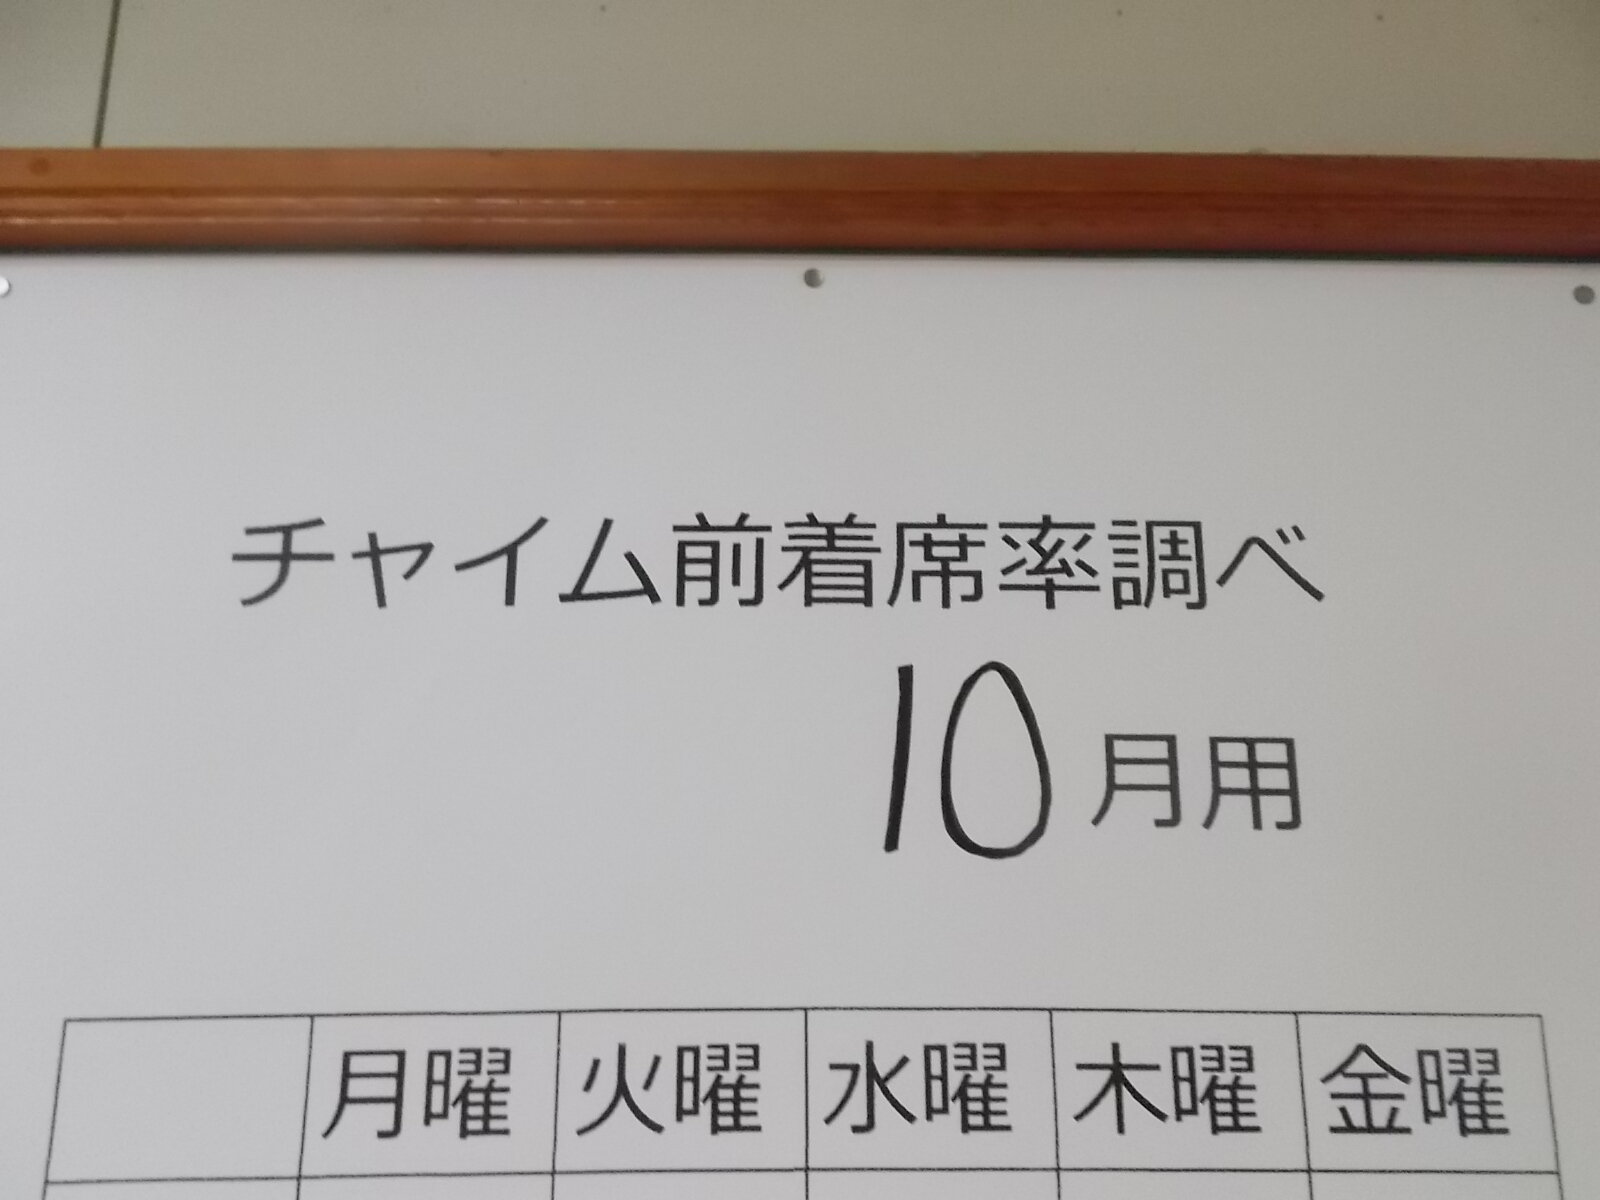 チャイム前着席率調べ
10月用
月曜 火曜 水曜 木曜 金曜